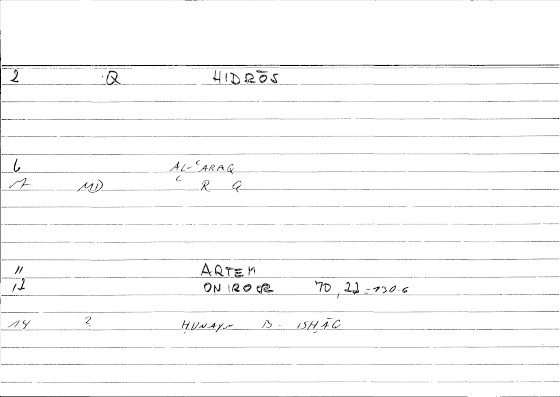 2 Q HIDRŌS
6 AL-ʿARAQ
7 MD ʿ R Q
11 ARTEM
12 ONIROCR 70,22 = 130.6
14 2 ḤUNAYN B. ISḤĀQ